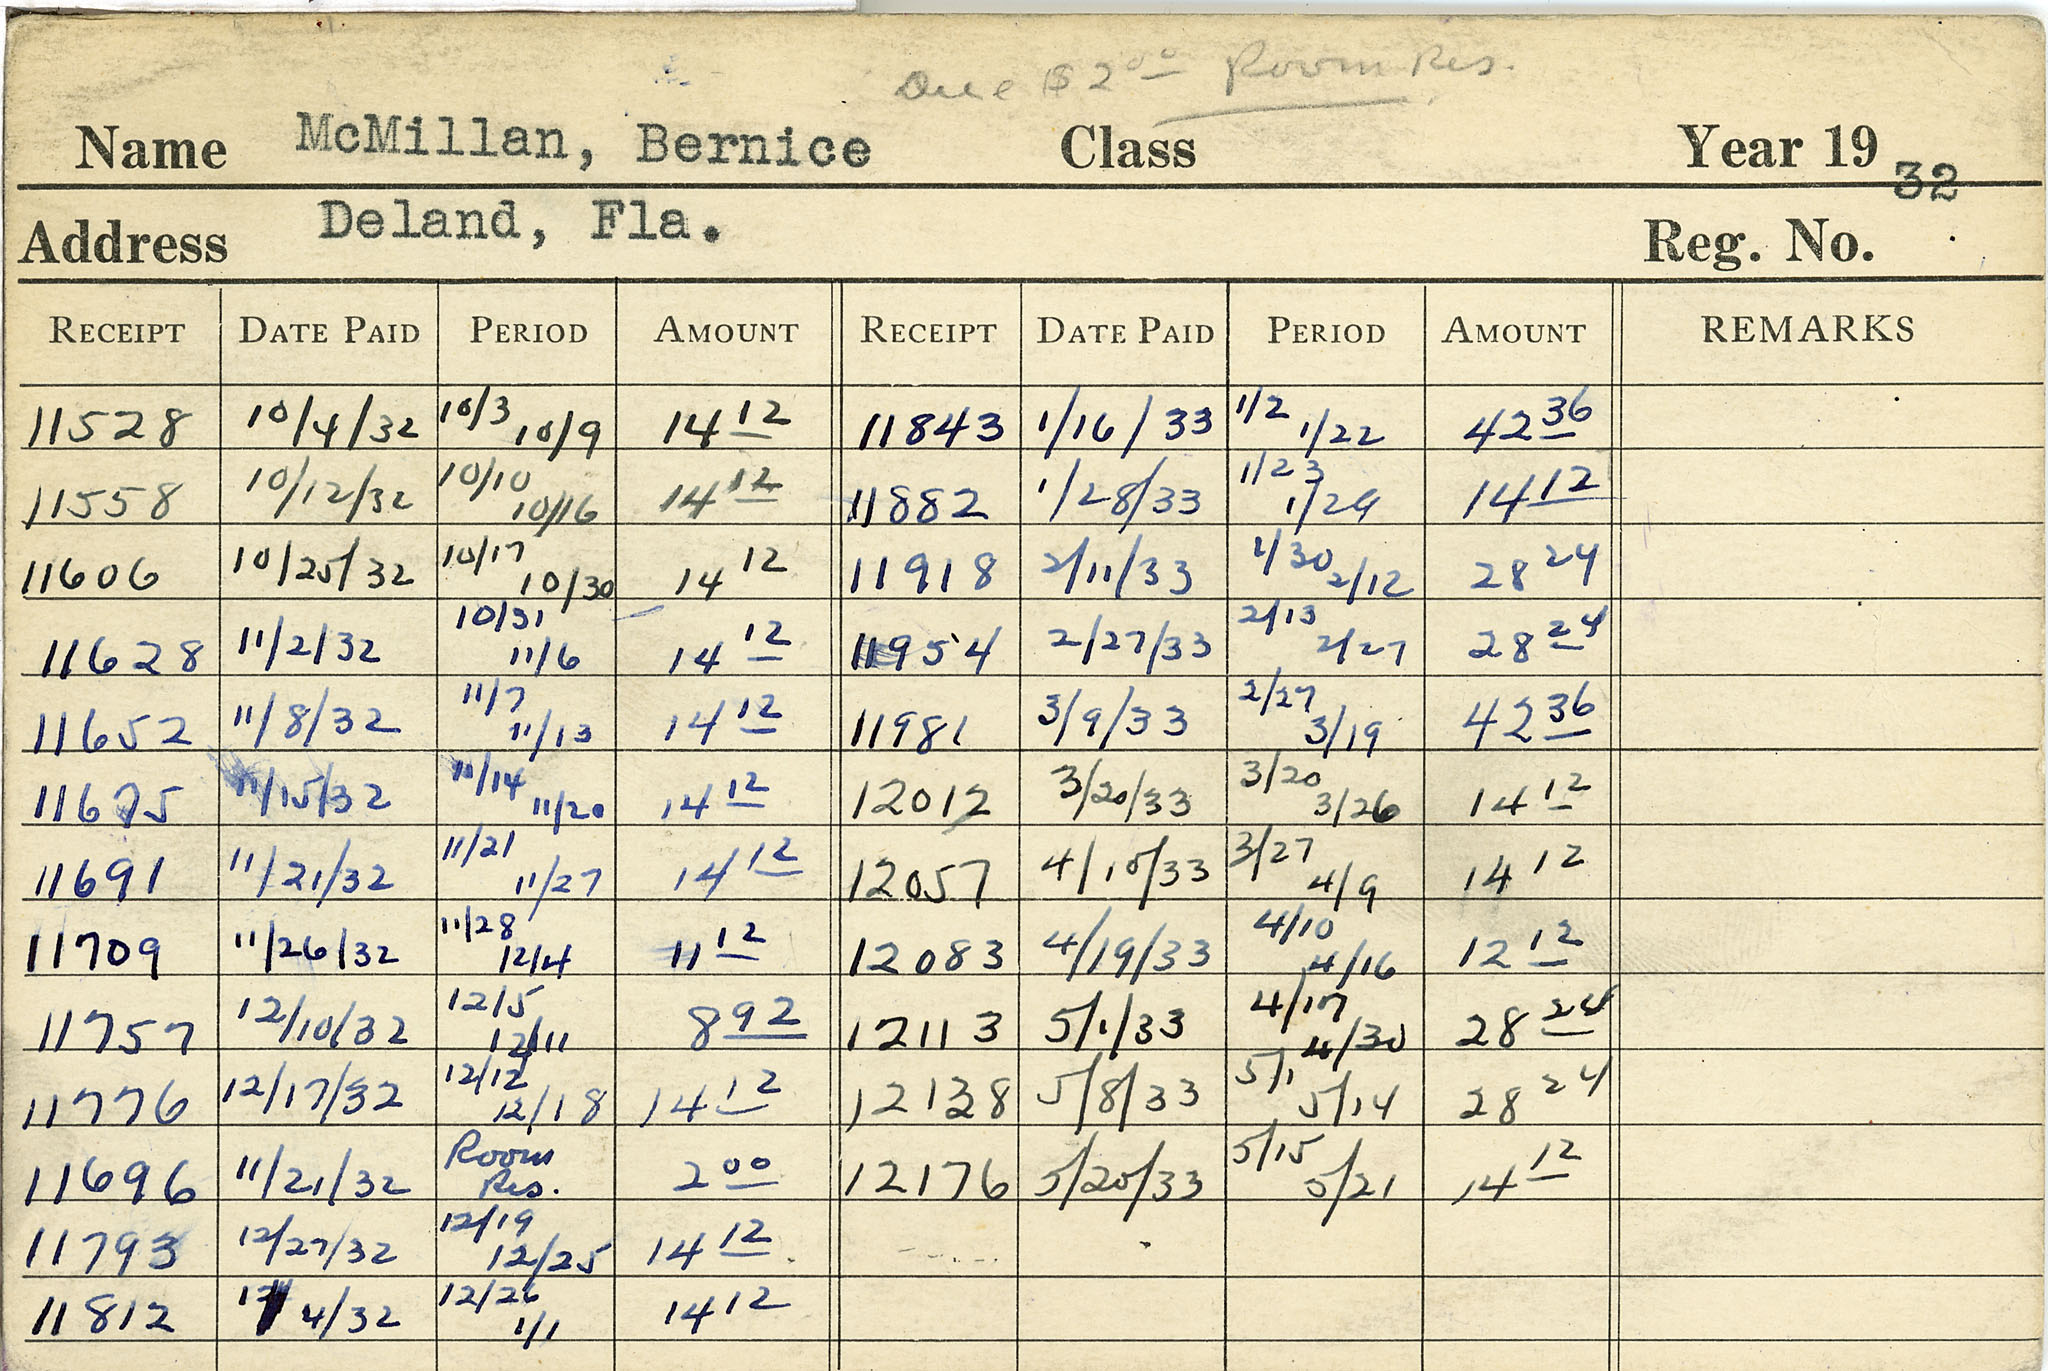 Due $2 00 Room Res.
Name McMillan, Bernice Class Year 19 32
Address Deland, Fla. Reg. No.
RECEIPT DATE PAID PERIOD AMOUNT RECEIPT DATE PAID PERIOD AMOUNT REMARKS
11528 10/4/32 10/3 10/9 14 12 11843 1/16/33 1/2 1/22 42 36
11558 10/12/32 10/10 10/16 14 12 11882 1/28/33 1/23 1/29 14 12
11606 10/25/32 10/17 10/30 14 12 11918 2/11/33 1/30 2/12 28 24
11628 11/2/32 10/31 11/6 14 12 11954 2/27/33 2/13 2/27 28 24
11652 11/8/32 11/7 11/13 14 12 11981 3/9/33 2/27 3/19 42 36
11675 11/15/32 11/14 11/20 14 12 12012 3/20/33 3/20 3/26 14 12
11691 11/21/32 11/21 11/27 14 12 12057 4/10/33 3/27 4/9 14 12
11709 11/26/32 11/28 12/4 11 12 12083 4/19/33 4/10 4/16 12 12
11757 12/10/32 12/5 12/11 8 92 12113 5/1/33 4/17 4/30 28 24
11776 12/17/32 12/12 12/18 14 12 12138 5/8/33 5/1 5/14 28 24
11696 11/21/32 Room Res. 2 00 12176 5/20/33 5/15 5/21 14 12
11793 12/27/32 12/19 12/25 14 12
11812 4/32 12/26 1/1 14 12